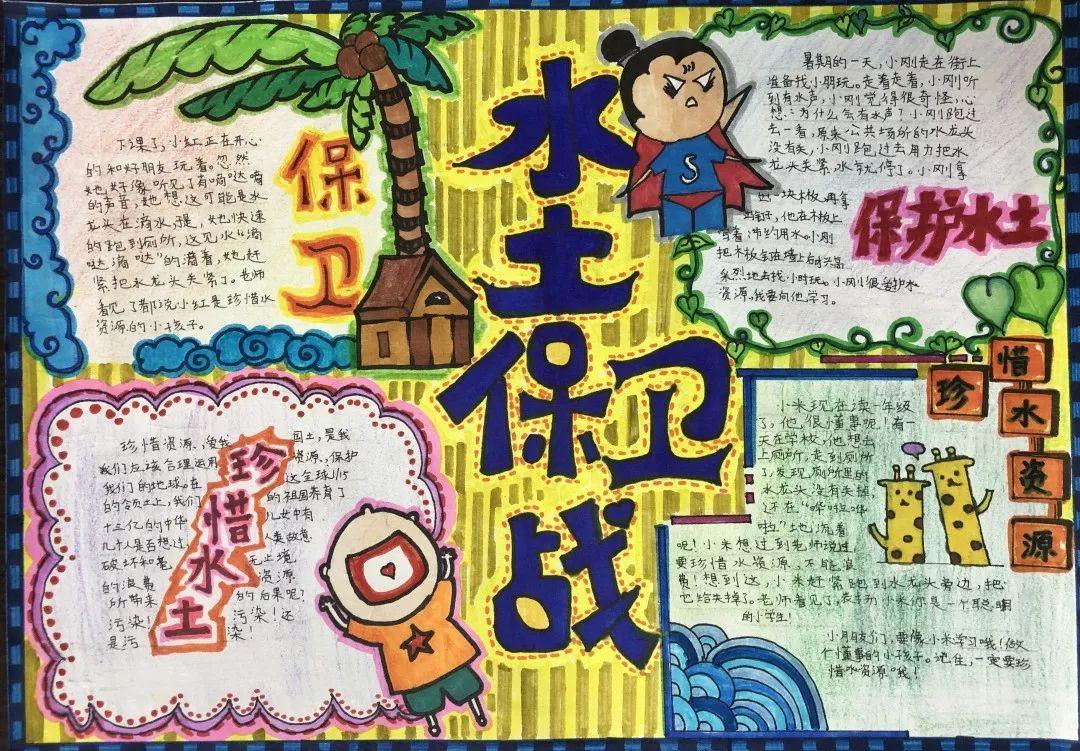 水土保卫战
保卫
下课了，小红正在开心
的和好朋友玩着。忽然
她好像听见了有嘀哒嘀
的声音，她想这可能是水
龙头在滴水，于是，她快速
的跑到厕所，这见水“滴
哒滴哒”的滴着，她赶
紧把水龙头关紧了。老师
看见了都说小红是珍惜水
资源的小孩子。
暑期的一天，小刚走在街上
准备找小朋玩。走着走着，小刚听
到有水声，小刚觉得很奇怪，心
想：为什么会有水声？小刚跑过
去一看，原来公共场所的水龙头
没有关，小刚跑过去用力把水
龙头关紧，水就停了。小刚拿
出一块木板，再拿
他在木板上
写着：节约用水。小刚
把木板
去找小时玩。小刚很爱护水
资源，我要向他学习。
保护水土
珍惜水土
珍惜资源，爱我 国土，是我
我们应该合理运用 资源，保护
我们的地球。在 这全球1/15
的领土上，我们 的祖国养育了
十三亿的中华 儿女中有
几个人是否想过， 人类故意
破坏和毫 无止境
的浪费 资源
所带来 的后果呢？
污染！ 污染！还
是污 染！
珍惜水资源
小米现在读一年级
了，他，很懂事呢！有一
天在学校，他想去
上厕所。走到厕所
了，发现厕所里的
水龙头没有关掉
还在“哗啦哗
啦”地流着
呢！小米想过到老师说过
要珍惜水资源，不能浪
费！想到这，小米赶紧跑到水龙头旁边，把
它给关掉了。老师看见了，表扬小米你是一个聪明
的小学生！
小朋友们，要像小米学习哦！做
个懂事的小孩子。记住，一定要珍
惜水资源哦！
S